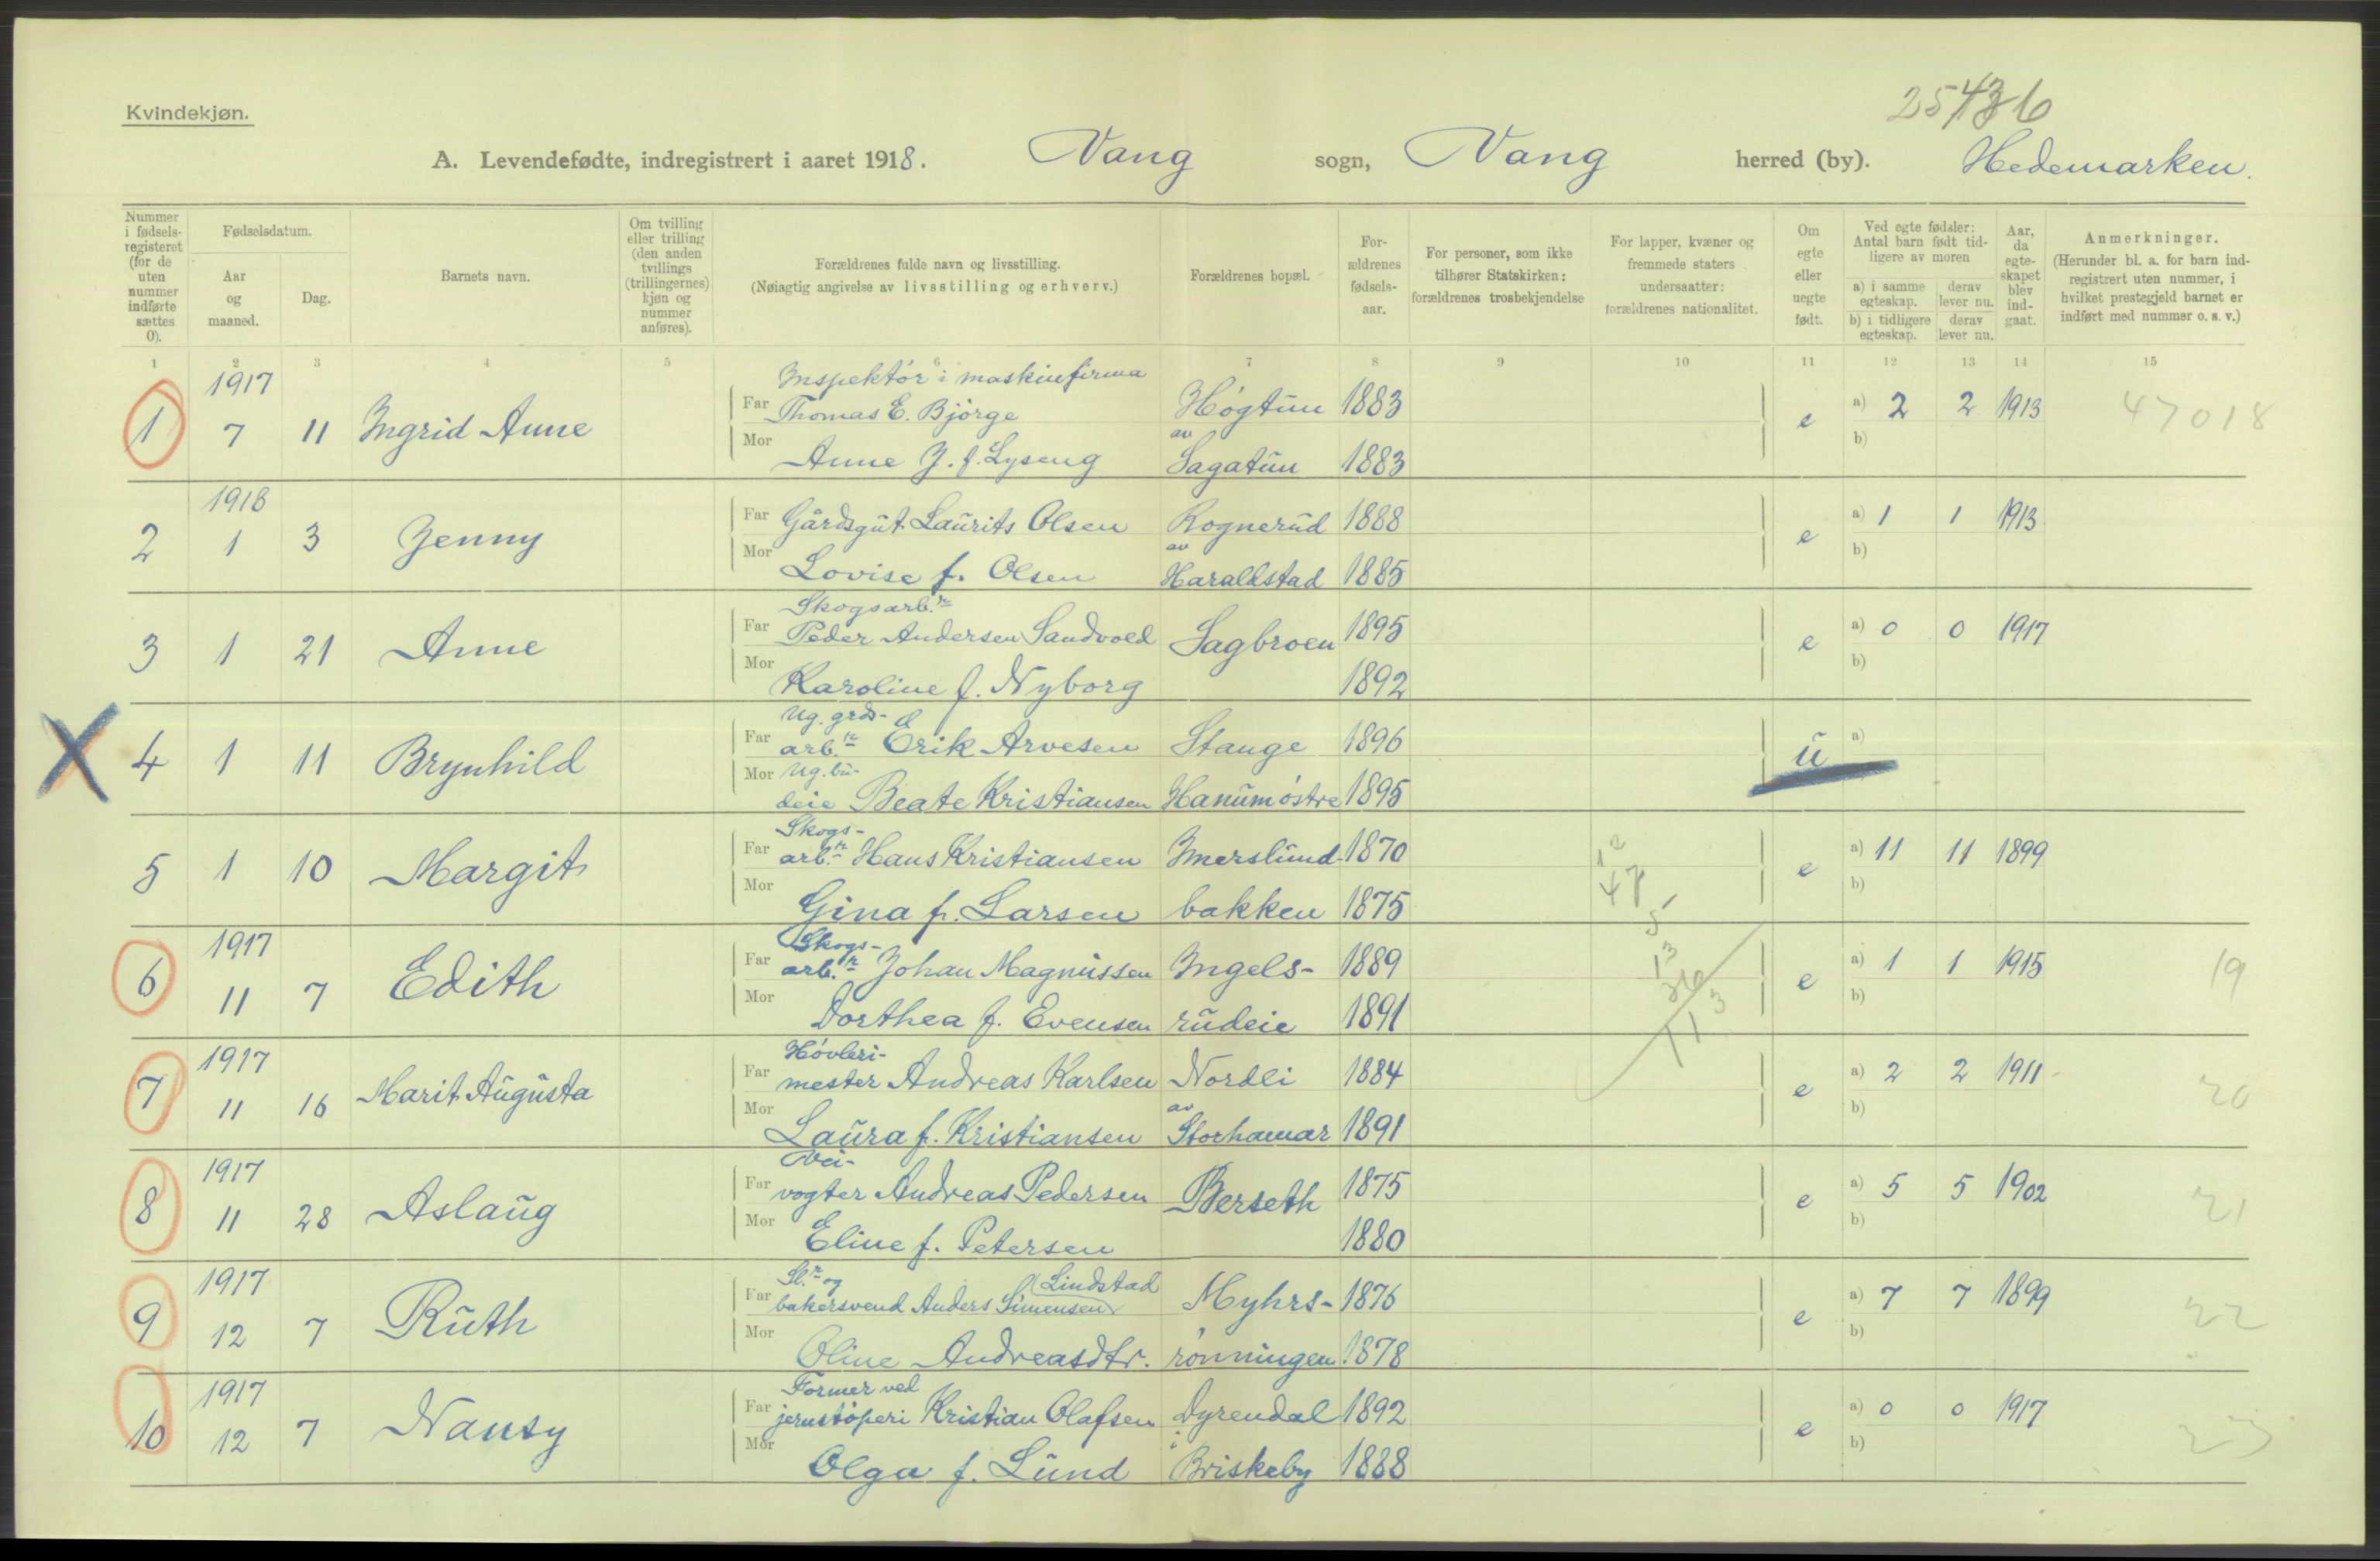 Kvindekjøn.
25436
A. Levendefødte, indregistrert i aaret 1918. Vang sogn, Vang herred (by). Hedemarken.
Nummer i fødselsregisteret (for de uten nummer indførte sættes 0).
Fødselsdatum.
Aar og maaned.
Dag.
Barnets navn.
Om tvilling eller trilling (den anden tvillings (trillingernes) kjøn og nummer anføres).
Forældrenes fulde navn og livsstilling.
(Nøiagtig angivelse av livsstilling og erhverv.)
Forældrenes bopæl.
Forældrenes fødselsaar.
For personer, som ikke tilhører Statskirken: forældrenes trosbekjendelse
For lapper, kvæner og fremmede staters undersaatter: forældrenes nationalitet.
Om egte eller uegte født.
Ved egte fødsler: Antal barn født tidligere av moren
a) i samme egteskap. derav lever nu.
b) i tidligere egteskap. derav lever nu.
Aar, da egteskapet blev indgaat.
Anmerkninger.
(Herunder bl. a. for barn indregistrert uten nummer, i hvilket prestegjeld barnet er indført med nummer o. s. v.)
1 2 3 4 5 6 7 8 9 10 11 12 13 14 15
1917 Inspektør i maskinfirma
1 7 11 Ingrid Anne Far Thomas E. Bjørge Høgtun 1883 e a) 2 2 1913 47018
Mor Anne J. f. Lyseng av Sagatun 1883 b)
1918
2 1 3 Jenny Far Gårdsgut Laurits Olsen Rognerud 1888 e a) 1 1 1913
Mor Lovise f. Olsen av Haraldstad 1885 b)
Skogsarb.r
3 1 21 Anne Far Peder Andersen Sandvold Sagbroen 1895 e a) 0 0 1917
Mor Karoline f. Nyborg 1892 b)
Ug. grds-
X 4 1 11 Brynhild Far arb.r Erik Arvesen Stange 1896 u a)
Mor Ug. budeie Beate Kristiansen Hanum østre 1895
Skogs-
5 1 10 Margit Far arb.r Hans Kristiansen Imerslund- 1870 e a) 11 11 1899
Mor Gina f. Larsen bakken 1875 b)
1917 Skogs-
6 11 7 Edith Far arb.r Johan Magnussen Ingels- 1889 e a) 1 1 1915 19
Mor Dorthea f. Evensen rudeie 1891 b)
1917 Høvleri-
7 11 16 Marit Augusta Far mester Andreas Karlsen Nordli 1884 e a) 2 2 1911 20
Mor Laura f. Kristiansen av Storhamar 1891 b)
1917 Vei-
8 11 28 Aslaug Far vogter Andreas Pedersen Berseth 1875 e a) 5 5 1902 21
Mor Eline f. Petersen 1880 b)
1917 Sl.r og Lindstad
9 12 7 Ruth Far bakersvend Anders Simensen Myhrs- 1876 e a) 7 7 1899 22
Mor Oline Andreasdtr. rønningen 1878 b)
1917 Former ved
10 12 7 Nansy Far jernstøperi Kristian Olafsen Dyrendal 1892 e a) 0 0 1917 23
Mor Olga f. Lund i Briskeby 1888 b)